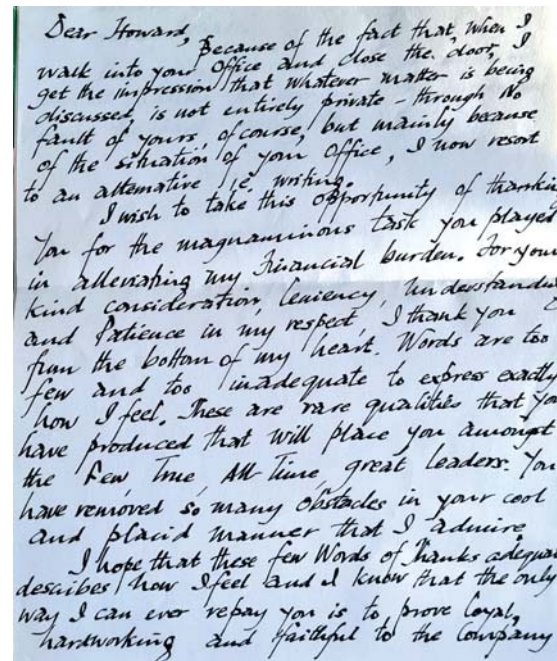 Dear Howard,
Because of the fact that, when I
walk into your Office and close the door, I
get the impression that whatever matter is being
discussed, is not entirely private - through No
fault of yours, of course, but mainly because
of the situation of your Office, I now resort
to an alternative i.e. writing.
I wish to take this opportunity of thanking
You for the magnanimous task you played
in alleviating my Financial burden. For your
kind consideration, leniency, Understanding
and Patience in my respect, I thank you
from the bottom of my heart. Words are too
few and too inadequate to express exactly
how I feel. These are rare qualities that you
have produced that will place you amongst
the Few True, All Time, great leaders. You
have removed so many Obstacles in your cool
and placid manner that I admire
I hope that these few Words of Thanks adequa
describes how I feel and I know that the only
way I can ever repay you is to prove Loyal,
hardworking and faithful to the Company